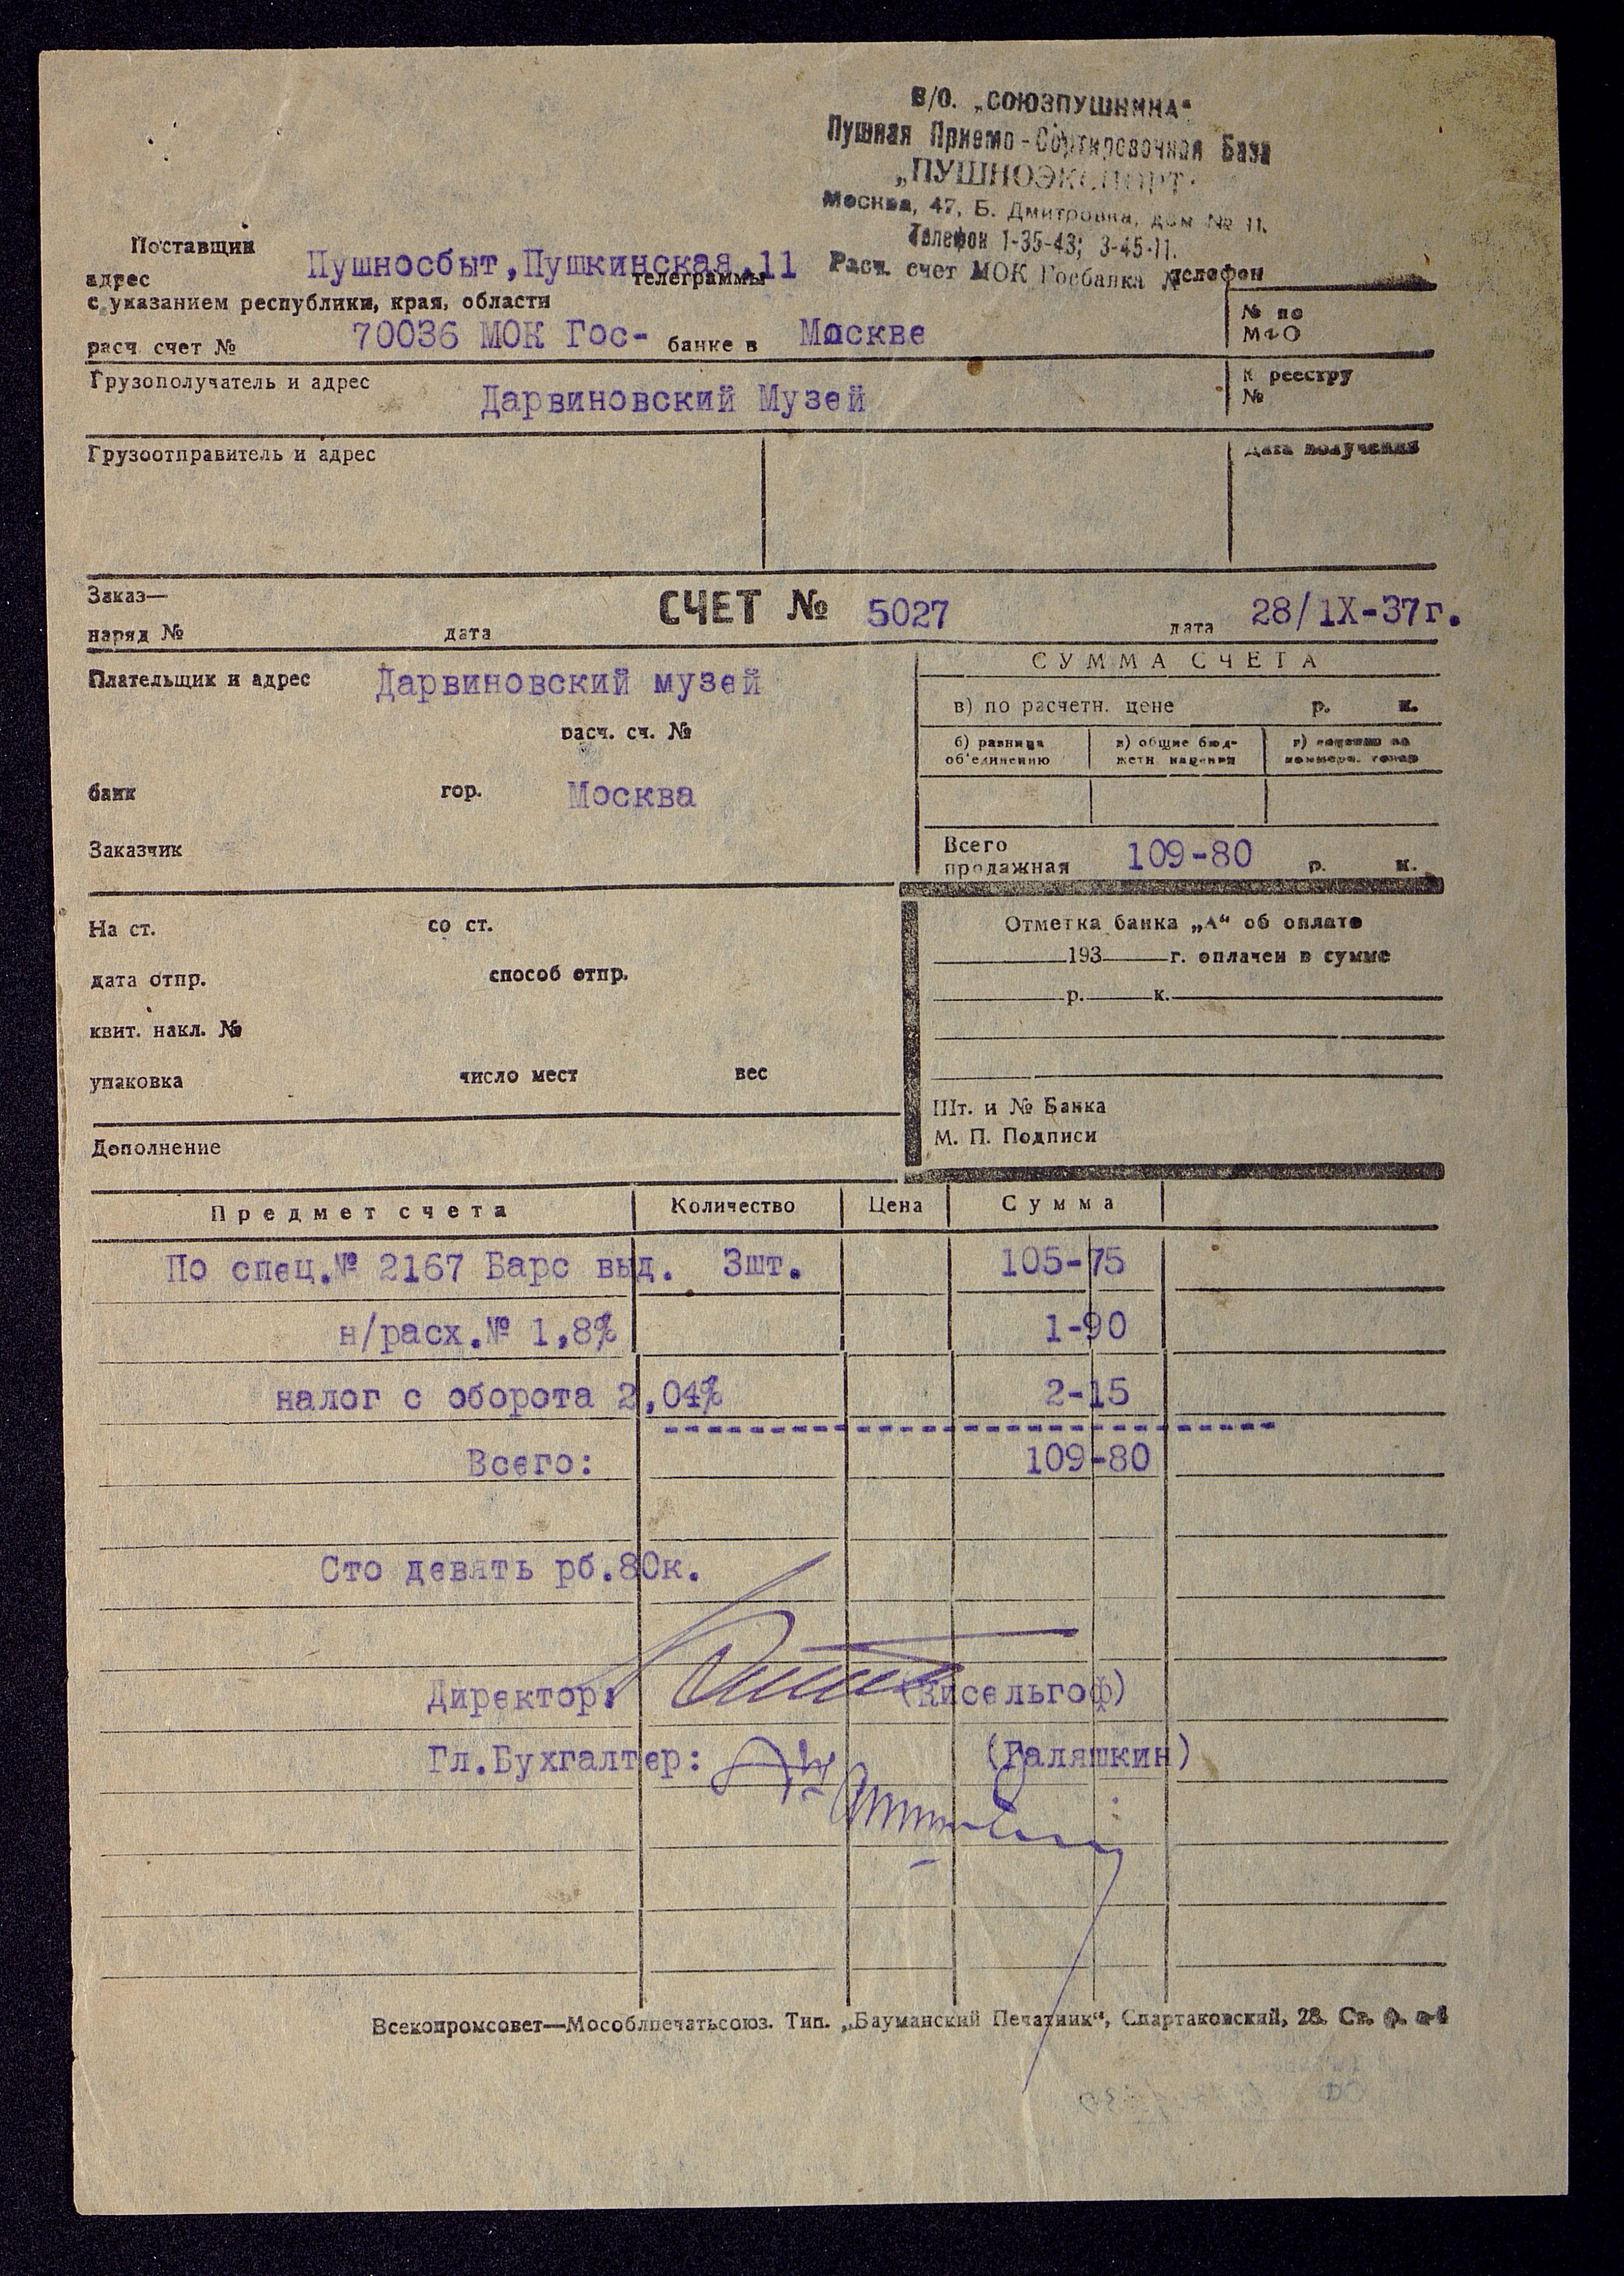 В/О. „СОЮЗПУШНИНА“
Пушная Приемо-Сортировочная База
„ПУШНОЭКСПОРТ“
Москва, 47, Б. Дмитровка, дом № 11.
Телефон 1-35-43; 3-45-11.
Расч. счет МОК Госбанка №
Поставщик
адрес Пушносбыт, Пушкинская, 11 телеграммы телефон
с указанием республики, края, области
№ по
МФО
расч. счет № 70036 МОК Гос- банке в Москве
Грузополучатель и адрес Дарвиновский Музей
К реестру
№
Грузоотправитель и адрес
Дата получения
Заказ—
наряд № дата
СЧЕТ № 5027 дата 28/IX-37г.
Плательщик и адрес Дарвиновский музей
расч. сч. №
банк гор. Москва
Заказчик
СУММА СЧЕТА
в) по расчетн. цене р. к.
б) разница объединению
в) общие бюджетн.
Всего
продажная 109-80 р. к.
На ст. со ст.
дата отпр. способ отпр.
квит. накл. №
упаковка число мест вес
Дополнение
Отметка банка „А“ об оплате
193 г. оплачен в сумме
р. к.
Шт. и № Банка
М. П. Подписи
Предмет счета Количество Цена Сумма
По спец.№ 2167 Барс выд. 3шт. 105-75
н/расх.№ 1,8% 1-90
налог с оборота 2,04% 2-15
Всего: 109-80
Сто девять рб.80к.
Директор: (Кисельгоф)
Гл.Бухгалтер: (Галяшкин)
Всекопромсовет—Мособлпечатьсоюз. Тип. „Бауманский Печатник“, Спартаковский, 28.